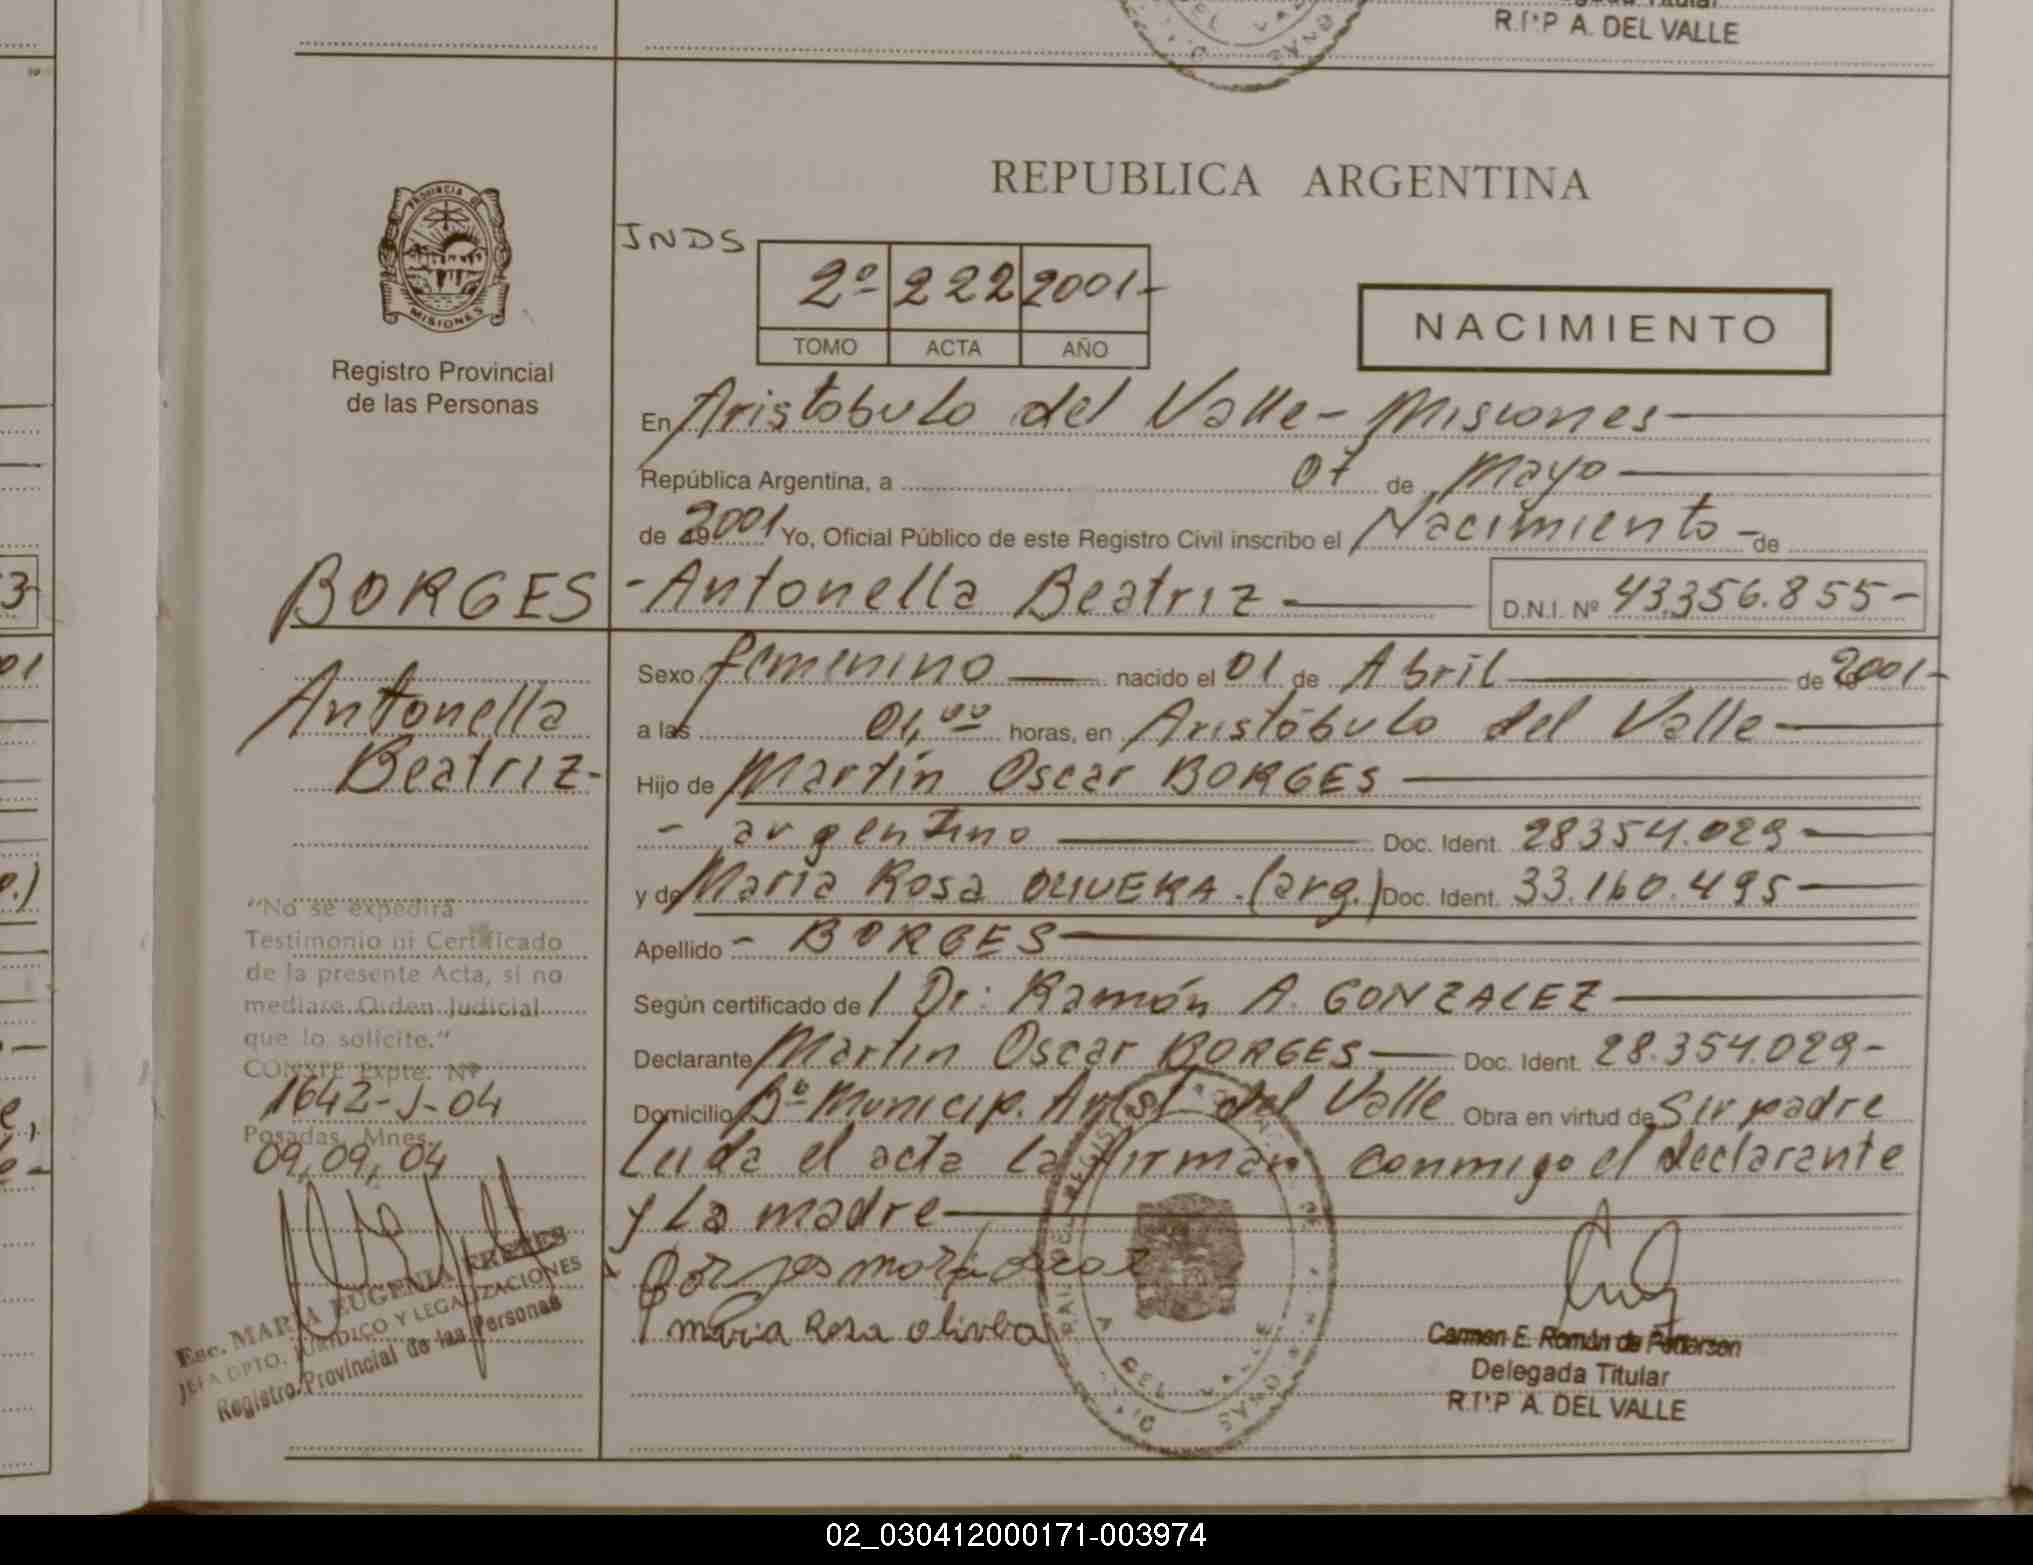 R.P.P A. DEL VALLE
PROVINCIA
MISIONES
Registro Provincial
de las Personas
REPUBLICA ARGENTINA
INDS
2º 222 2001-
TOMO ACTA AÑO
NACIMIENTO
En Aristobulo del Valle - Misiones
República Argentina, a 07 de Mayo
de 2001 Yo, Oficial Público de este Registro Civil inscribo el Nacimiento - de
BORGES - Antonella Beatriz - D.N.I. Nº 43.356.855-
Antonella
Beatriz-
Sexo femenino nacido el 01 de Abril de 2001-
a las 01,00 horas, en Aristóbulo del Valle
Hijo de Martín Oscar BORGES
- argentino Doc. Ident. 28354.029-
y de María Rosa OLIVERA. (arg.) Doc. Ident. 33.160.495
Apellido - BORGES
Según certificado de / Dr: Ramón A. GONZALEZ
Declarante Martín Oscar BORGES Doc. Ident. 28.354.029-
Domicilio Bº Municip. Arist del Valle Obra en virtud de Sir padre
Leida el acta la firman conmigo el declarante
y La madre
"No se expedirá
Testimonio ni Certificado
de la presente Acta, si no
mediare Orden Judicial
que lo solicite."
Expte. Nº
1642-J-04
Posadas, Mnes.
09,09,04
Esc. MARIA EUGENIA
JEFA DPTO. JURIDICO Y LEGALIZACIONES
Registro Provincial de las Personas
maria Rosa olivera
DEL VALLE
Carmen E. Román de Pedersen
Delegada Titular
R.P.P A. DEL VALLE
02_030412000171-003974